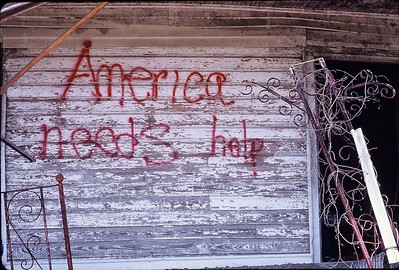 America
needs help